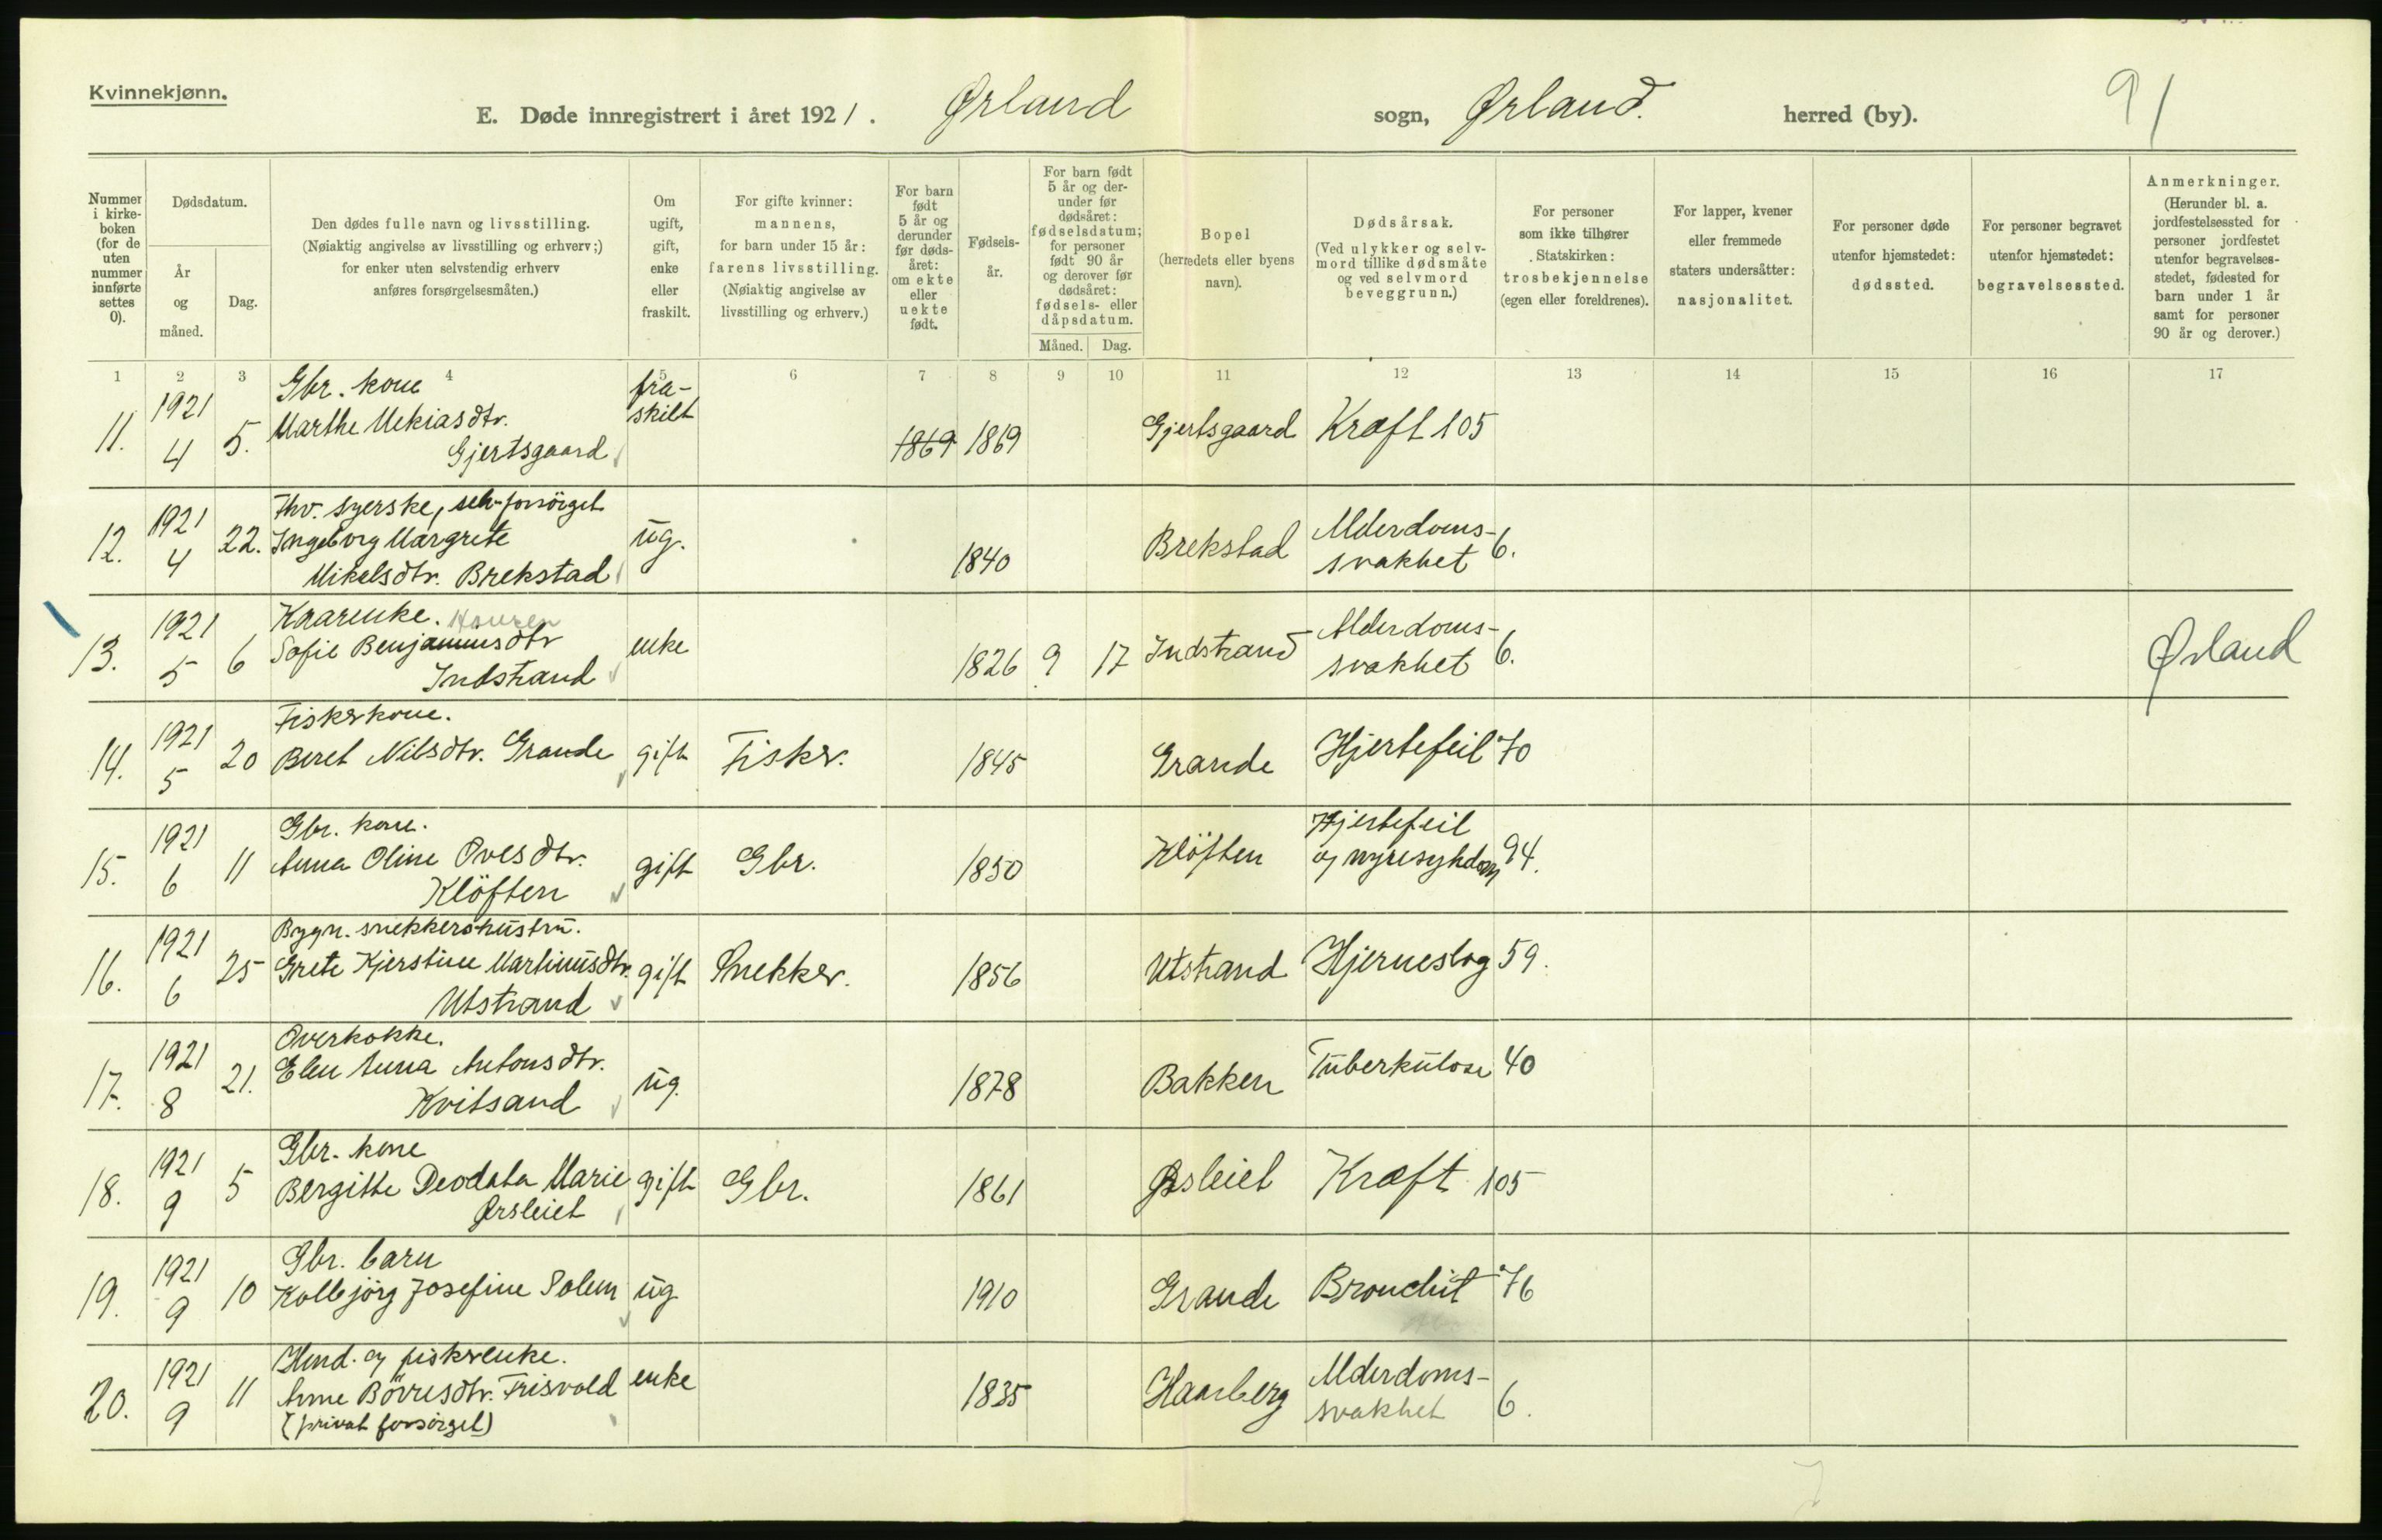 Kvinnekjønn.
E. Døde innregistrert i året 1921. Ørland sogn, Ørland. herred (by). 91
Nummer i kirke-boken (for de uten nummer innførte settes 0).
Dødsdatum.
År og måned.
Dag.
Den dødes fulle navn og livsstilling.
(Nøiaktig angivelse av livsstilling og erhverv;)
for enker uten selvstendig erhverv
anføres forsørgelsesmåten.)
Om ugift, gift, enke eller fraskilt.
For gifte kvinner:
mannens,
for barn under 15 år:
farens livsstilling.
(Nøiaktig angivelse av
livsstilling og erhverv.)
For barn født 5 år og derunder før døds-året: om ekte eller uekte født.
Fødsels-år.
For barn født 5 år og der-under før dødsåret: fødselsdatum; for personer født 90 år og derover før dødsåret: fødsels- eller dåpsdatum.
Måned. Dag.
Bopel
(herredets eller byens
navn).
Dødsårsak.
(Ved ulykker og selv-
mord tillike dødsmåte
og ved selvmord
beveggrunn.)
For personer
som ikke tilhører
Statskirken:
trosbekjennelse
(egen eller foreldrenes).
For lapper, kvener
eller fremmede
staters undersåtter:
nasjonalitet.
For personer døde
utenfor hjemstedet:
dødssted.
For personer begravet
utenfor hjemstedet:
begravelsessted.
Anmerkninger.
(Herunder bl. a.
jordfestelsessted for
personer jordfestet
utenfor begravelses-
stedet, fødested for
barn under 1 år
samt for personer
90 år og derover.)
1 2 3 4 5 6 7 8 9 10 11 12 13 14 15 16 17
11. 1921 4 5. Gbr. kone
Marthe Mekiasdtr.
Gjertsgaard
fra-
skilt
1869 1869 Gjertsgaard Kræft 105
12. 1921 4 22. Fhv. syerske, selv-forsörget
Ingeborg Margrete
Mikelsdtr. Brekstad
ug. 1840 Brekstad Alderdoms-
svakhet 6.
13. 1921 5 6 Kaarenke. Hovren
Sofie Benjaminsdtr
Indstrand
enke 1826 9 17 Indstrand Alderdoms-
svakhet 6. Ørland
14. 1921 5 20 Fiskerkone.
Beret Nilsdtr. Grande
gift Fisker. 1845 Grande Hjertefeil 70
15. 1921 6 11 Gbr. kone.
Anna Oline Ovesdtr.
Klöften
gift Gbr. 1850 Klöften Hjertefeil
og nyresykdom 94.
16. 1921 6 25 Bygn. snekkershustru.
Grete Kjerstine Martinusdtr.
Utstrand
gift Snekker. 1856 Utstrand Hjerneslag 59.
17. 1921 8 21. Overkokke.
Elen Anna Antonsdtr.
Kvitsand
ug. 1878 Bakken Tuberkulose 40
18. 1921 9 5 Gbr. kone
Bergitte Deodata Marie
Ørsleiet
gift Gbr. 1861 Øsleiet Kræft 105
19. 1921 9 10 Gbr. barn
Kolbjörg Josefine Solem
ug 1910 Grande Bronchit 76
20. 1921 9 11 Hmd. og fiskerenke.
Anne Börresdtr. Frisvold
(privat forsörget)
enke 1835 Haarberg Alderdoms-
svakhet 6.